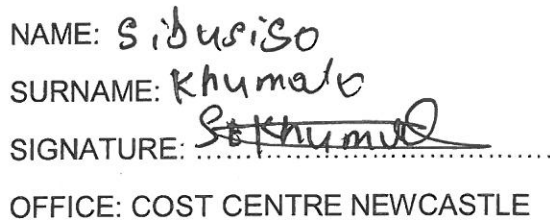 NAME: Sibusiso
SURNAME: Khumalo
SIGNATURE: SBKhumal
OFFICE: COST CENTRE NEWCASTLE